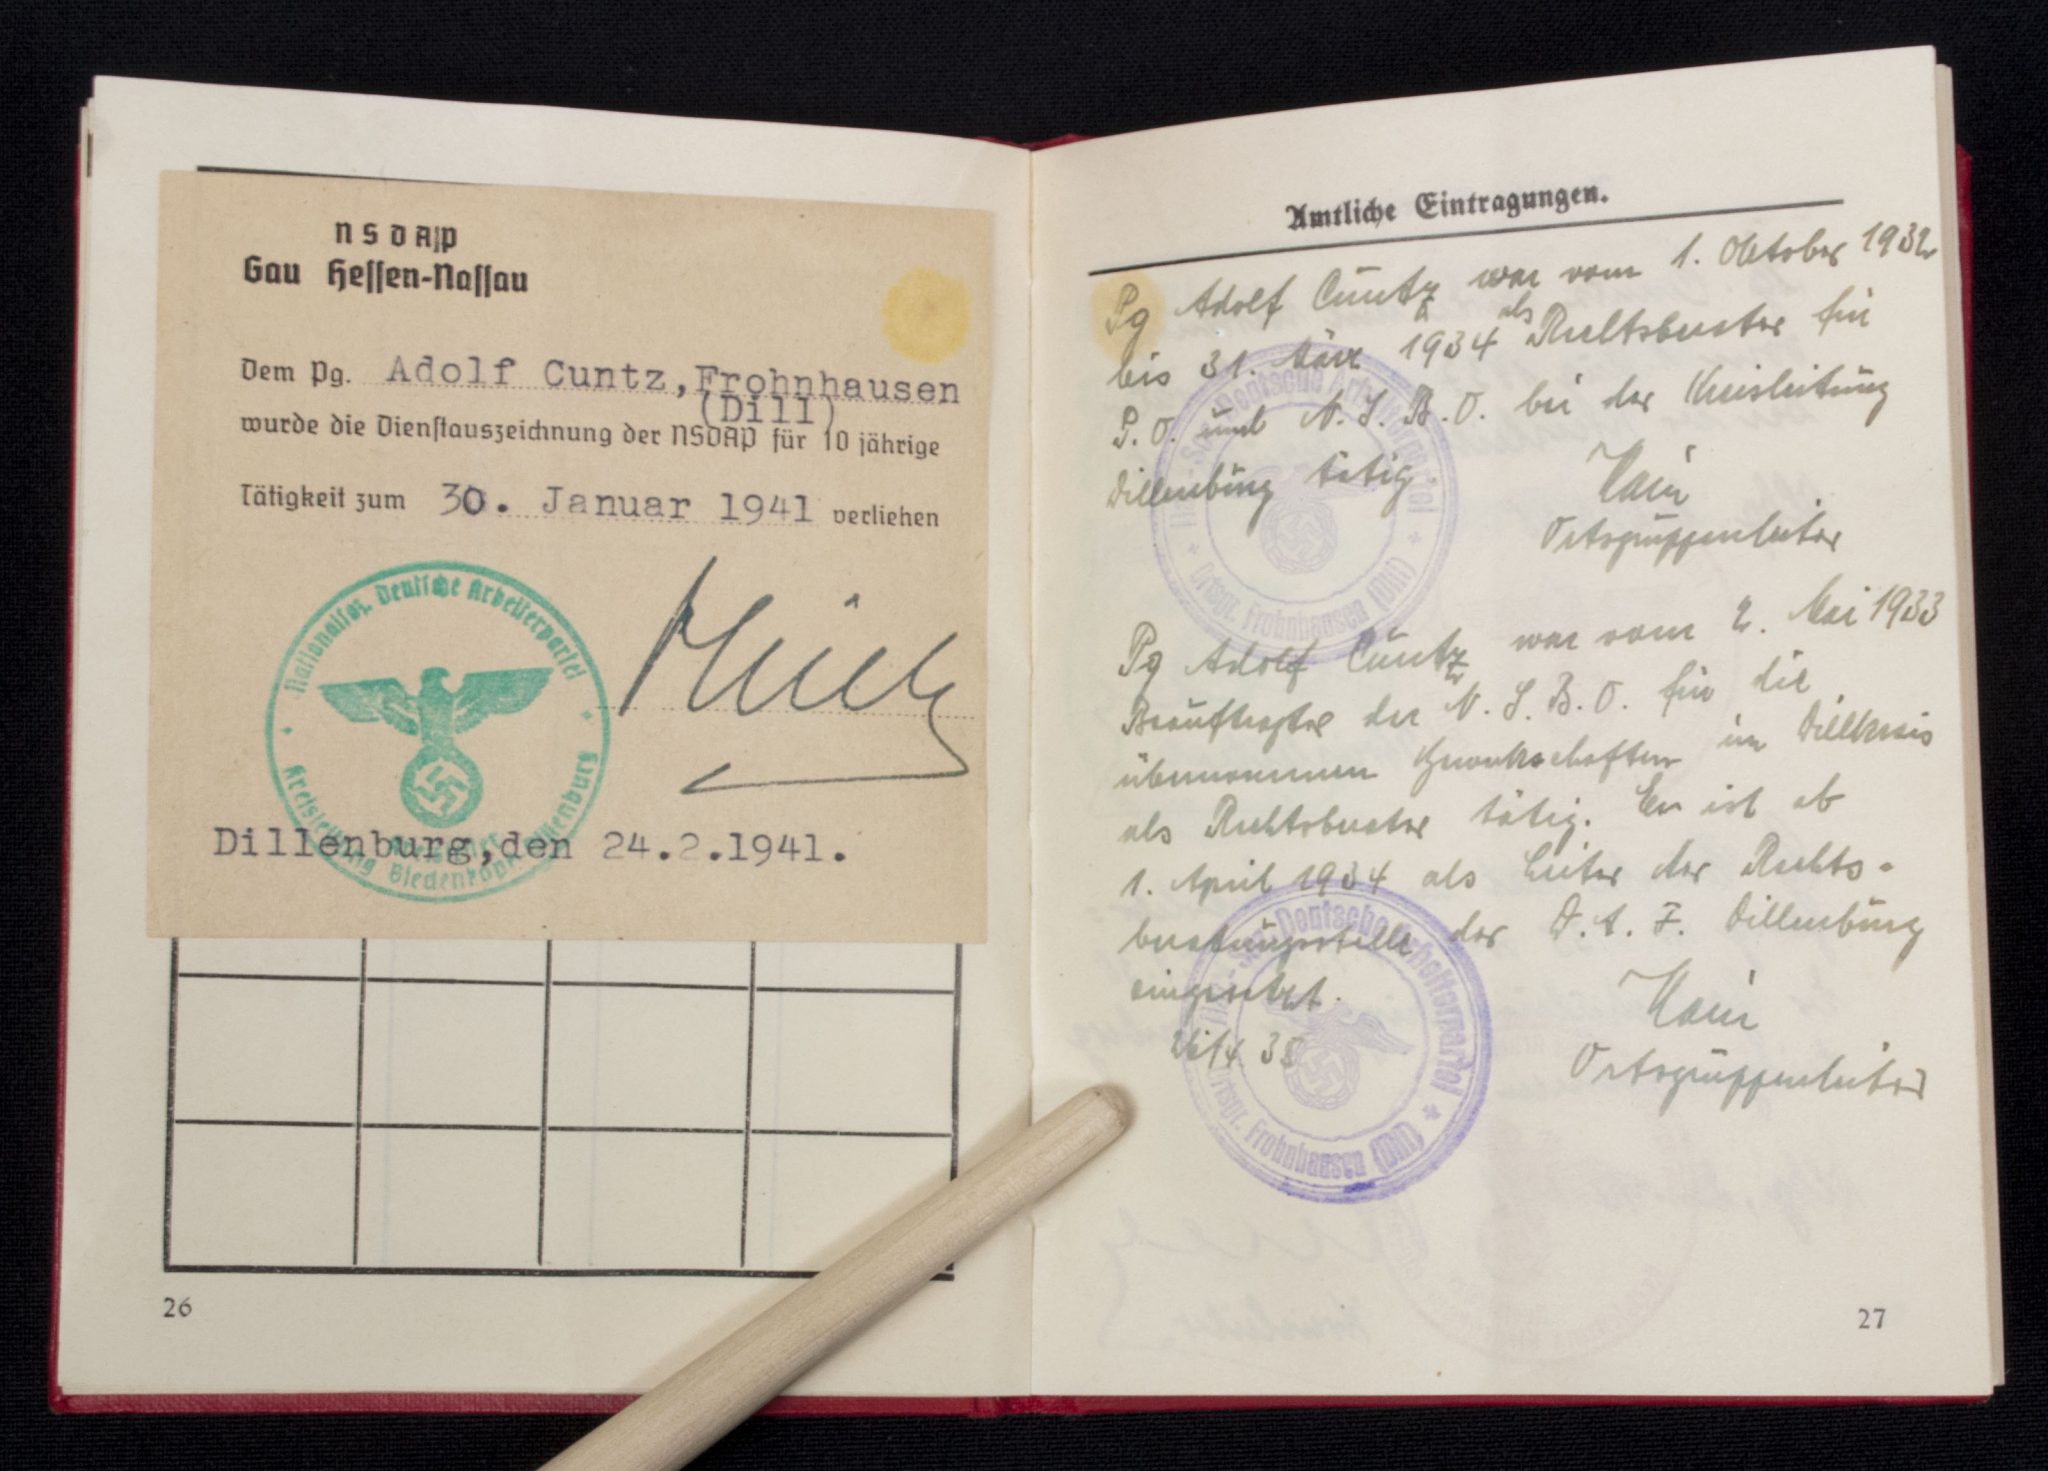 NSDAP
Gau Hessen-Nassau
Dem Pg. Adolf Cuntz, Frohnhausen
(Dill)
wurde die Dienstauszeichnung der NSDAP für 10 jährige
Tätigkeit zum 30. Januar 1941 verliehen
Nationalsoz. Deutsche Arbeiterpartei
Kreisleitung Biedenkopf-Dillenburg
Dillenburg, den 24.2.1941.
26
Amtliche Eintragungen.
Pg Adolf Cuntz war vom 1. Oktober 1932
bis 31. März 1934 als Rechtsberater für
P. O. und N. S. B. O. bei der Kreisleitung
Dillenburg tätig.
Hain
Ortsgruppenleiter
Deutsche Arbeiterpartei
Ortsgr. Frohnhausen (Dill)
Pg Adolf Cuntz war vom 2. Mai 1933
Beauftragter der N. S. B. O. für die
übernommenen Gewerkschaften im Dillkreis
als Rechtsberater tätig. Er ist ab
1. April 1934 als Leiter der Rechts-
beratungsstelle der D. A. F. Dillenburg
eingesetzt.
Hain
Ortsgruppenleiter
Deutsche Arbeiterpartei
Ortsgr. Frohnhausen (Dill)
27